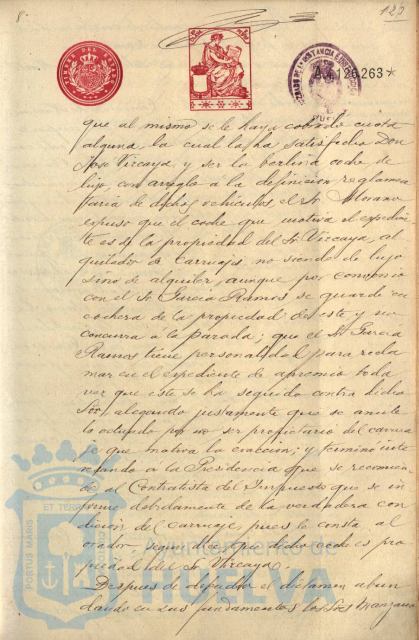 8
123
TIMBRE DEL ESTADO
A4.126.263*
que al mismo se le haya cobrado cuota
alguna, la cual la ha satisfecho Don
Jose Vizcaya, y ser la berlina coche de
lujo, con arreglo á la definicion reglamen
taria de dichos vehiculos, el Sr. Morano
expuso que el coche que motiva el expedien
te es de la propiedad del Sr. Vizcaya, al
quilador de Carruajes, no siendo de lujo
sino de alquiler, aunque por convenio
con el Sr. Garcia Ramos se guarde en
cochera de la propiedad de este y no
concurra á la parada; que el Sr. Garcia
Ramos tiene personalidad para recla
mar en el expediente de apremio toda
vez que este se ha seguido contra dicho
Sor., alegando justamente que se anule
lo actuado por no ser propietario del carrua
je que motiva la exaccion; y terminó inte
resando á la Presidencia que se recomien
de al Contratista del Impuesto que se in
forme debidamente de la verdadera con
dicion del carruaje, pues le consta al
orador, segun dice, que dicho coche es pro
piedad del Sr. Vizcaya.
Despues de defendido el dictamen abun
dando en sus fundamentos los Sres. Manzano
PORTUS MARIS ET TERRAE
Ayuntamiento de
HUELVA